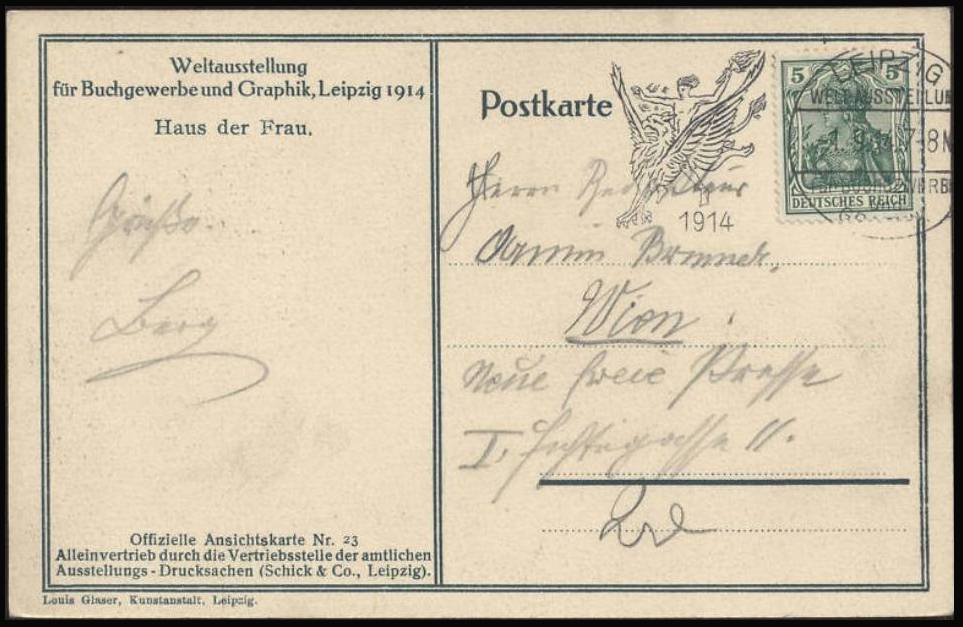 Weltausstellung
für Buchgewerbe und Graphik, Leipzig 1914
Haus der Frau.
Grüße
Berg
Offizielle Ansichtskarte Nr. 23
Alleinvertrieb durch die Vertriebsstelle der amtlichen
Ausstellungs-Drucksachen (Schick & Co., Leipzig).
Louis Glaser, Kunstanstalt, Leipzig.
Postkarte
1914
5 5
DEUTSCHES REICH
LEIPZIG
WELTAUSSTELLU
7-8N
Herrn Redakteur
Armin Brunner,
Wien
Neue Freie Presse
I. Fichtegasse 11.